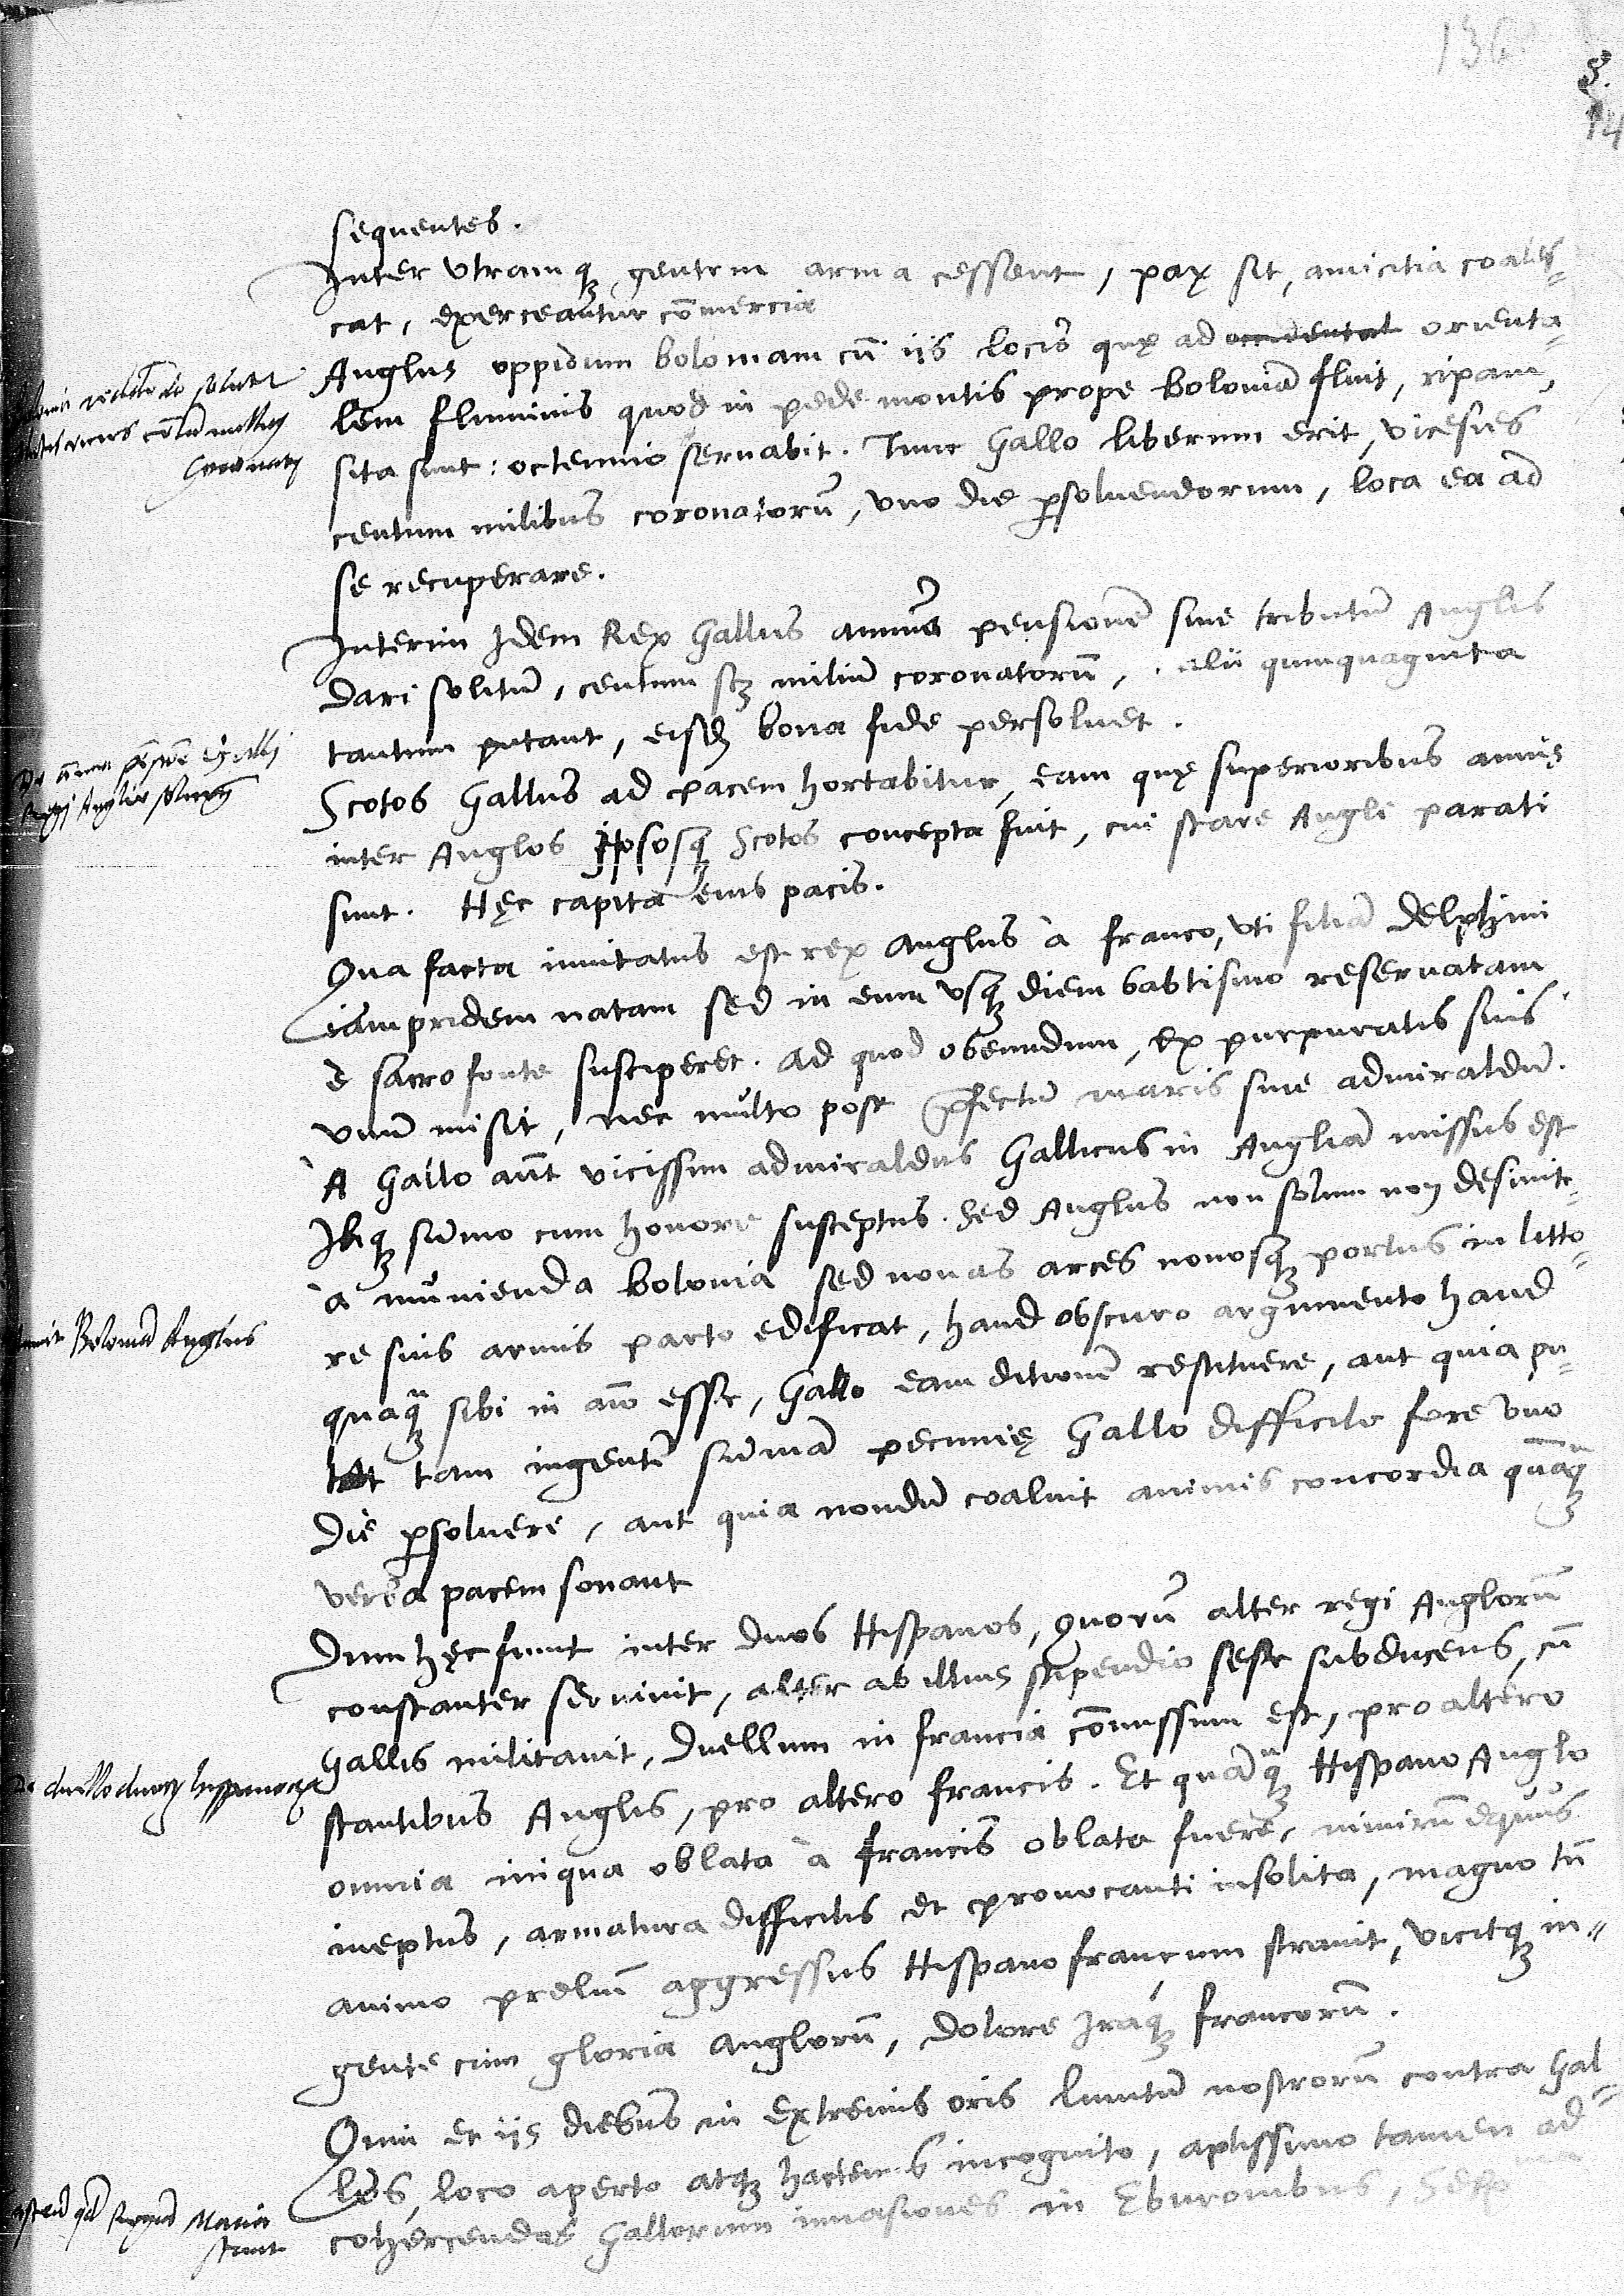 136
sequentes.
Inter vtramq; gentem arma cessent, pax sit, amicitia coales-
cat, exerceantur cõmercia
Anglus oppidum boloniam cũ iis locis quę ad occidentat orienta-
lem fluminis quod in pede montis prope boloniã fluit, ripam,
sita sunt: octennio seruabit. Tunc Gallo liberum erit, vicesies
centum milibus coronatorũ, vno die psoluendorum, loca ea ad
se recuperare.
Interim Idem Rex Gallus annuã pensionẽ siue tributũ Anglis
dari solitũ, centum scz miliũ coronatorũ, alii quinquaginta
tantum putant, eisd bona fide persoluet.
De annua pẽsiõe Galli
Regi Anglie
Scotos Gallus ad pacem hortabitur, eam quę superioribus annis
inter Anglos Ipsosq; Scotos concepta fuit, cui stare Angli parati
sunt. Hęc capita eius pacis.
Qua facta inuitatus est rex Anglus à franco, vti filiã Delphini
iampridem natam sed in eum vsq; diem babtismo reseruatam
è sacro fonte susciperet. Ad quod obeundum, ex purpuratis suis
vnũ misit, nec multo post pfectũ maris siue admiraldũ.
A Gallo aũt vicissim admiraldus Gallicus in Angliã missus est
Ibiq; sũmo cum honore susceptus. Sed Anglus non solum non desinit
à munienda bolonia sed nouas arces nouosq; portus in litto-
Boloniã Anglus
re suis armis parto edificat, haud obscuro argumento haud
quaq; sibi in aĩo esse, Gallo eam ditionẽ restituere, aut quia pu-
tet tam ingentẽ sũmã pecunię Gallo difficile fore vno
die psoluere, aut quia nondũ coaluit animis concordia quãq;
verba pacem sonant
Dum hęc fiunt inter duos Hispanos, quorũ alter regi Anglorũ
constanter seruiuit, alter ab illius stipendio sese subducens, cũ
Gallis militauit, duellum in francia cõmissum est, pro altero
De duello duorũ hispanorũ
stantibus Anglis, pro altero francis. Et quãq; Hispano Anglo
omnia iniqua oblata à francis oblata fuere, nimirũ equus
ineptus, armatura difficilis et prouocanti insolita, magno tñ
animo preliũ aggressus Hispano francum strauit, vicitq; in-
gente cum gloria Anglorũ, dolore Iraq; francorũ.
Quin et iis diebus in extremis oris limitũ nostrorũ contra Gal-
los, loco aperto atq; hactenus incognito, aptissimo tamen ad
Maria
cohercendas Gallorum inuasiones in Eburonibus,